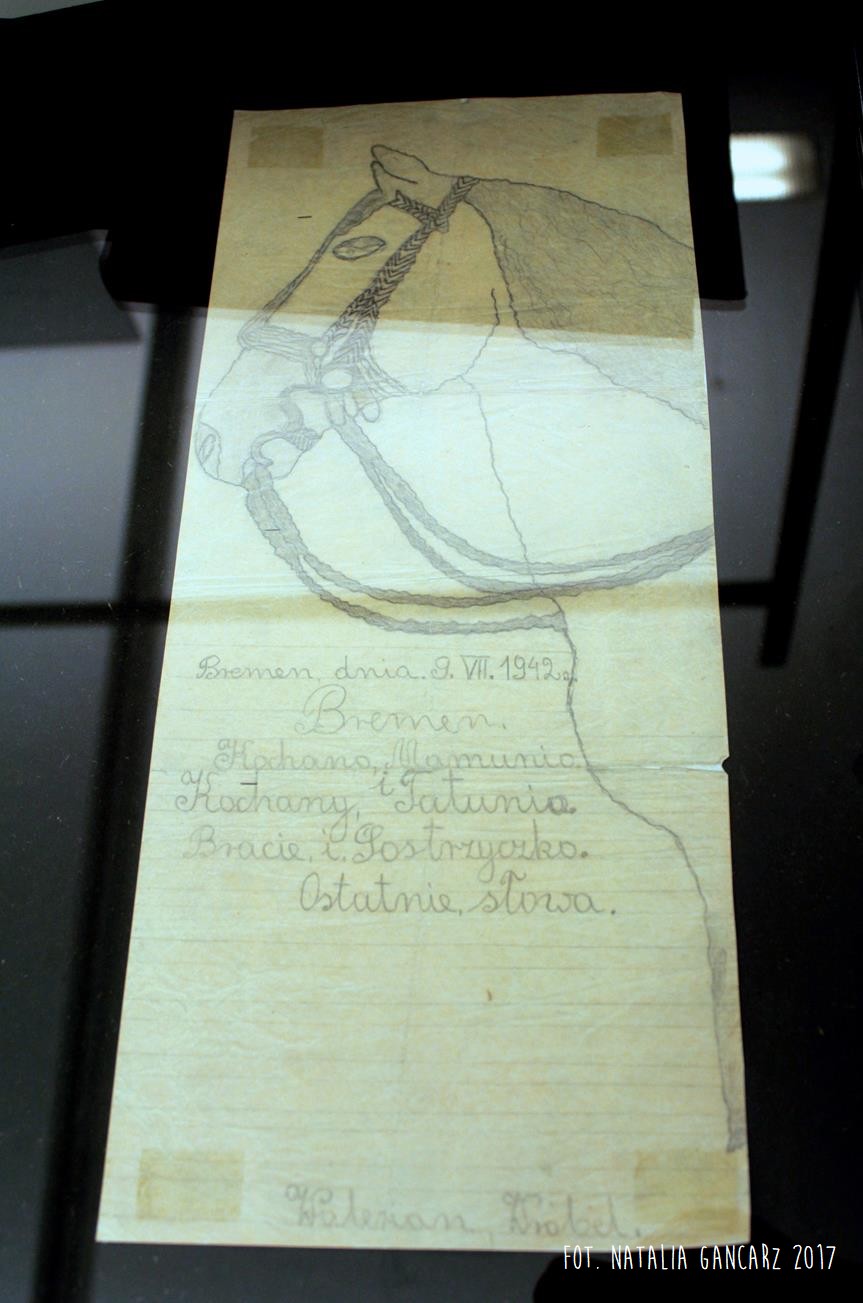 Bremen, dnia. 9. VII. 1942.r.
Bremen.
Kochano, Mamunio.
i
Kochany, Tatunio.
Bracie, i. Sostrzyczko.
Ostatnie, słowa.
Walerian, Wróbel.
FOT. NATALIA GANCARZ 2017